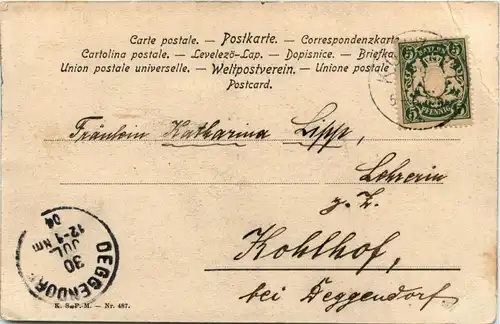 Carte postale. — Postkarte. — Correspondenzkarte
Cartolina postale. — Levelezö-Lap. — Dopisnice. — Briefka
Union postale universelle. — Weltpostverein. — Unione postale
Postcard.
BAYERN
5 5
PFENNIG
5 5
Fräulein Katharina Lipp,
Lehrerin
z. Z.
Kohlhof,
bei Deggendorf.
DEGGENDORF
30
JUL
12-1 Nm
04
K. S.-P.-M. — Nr. 487.